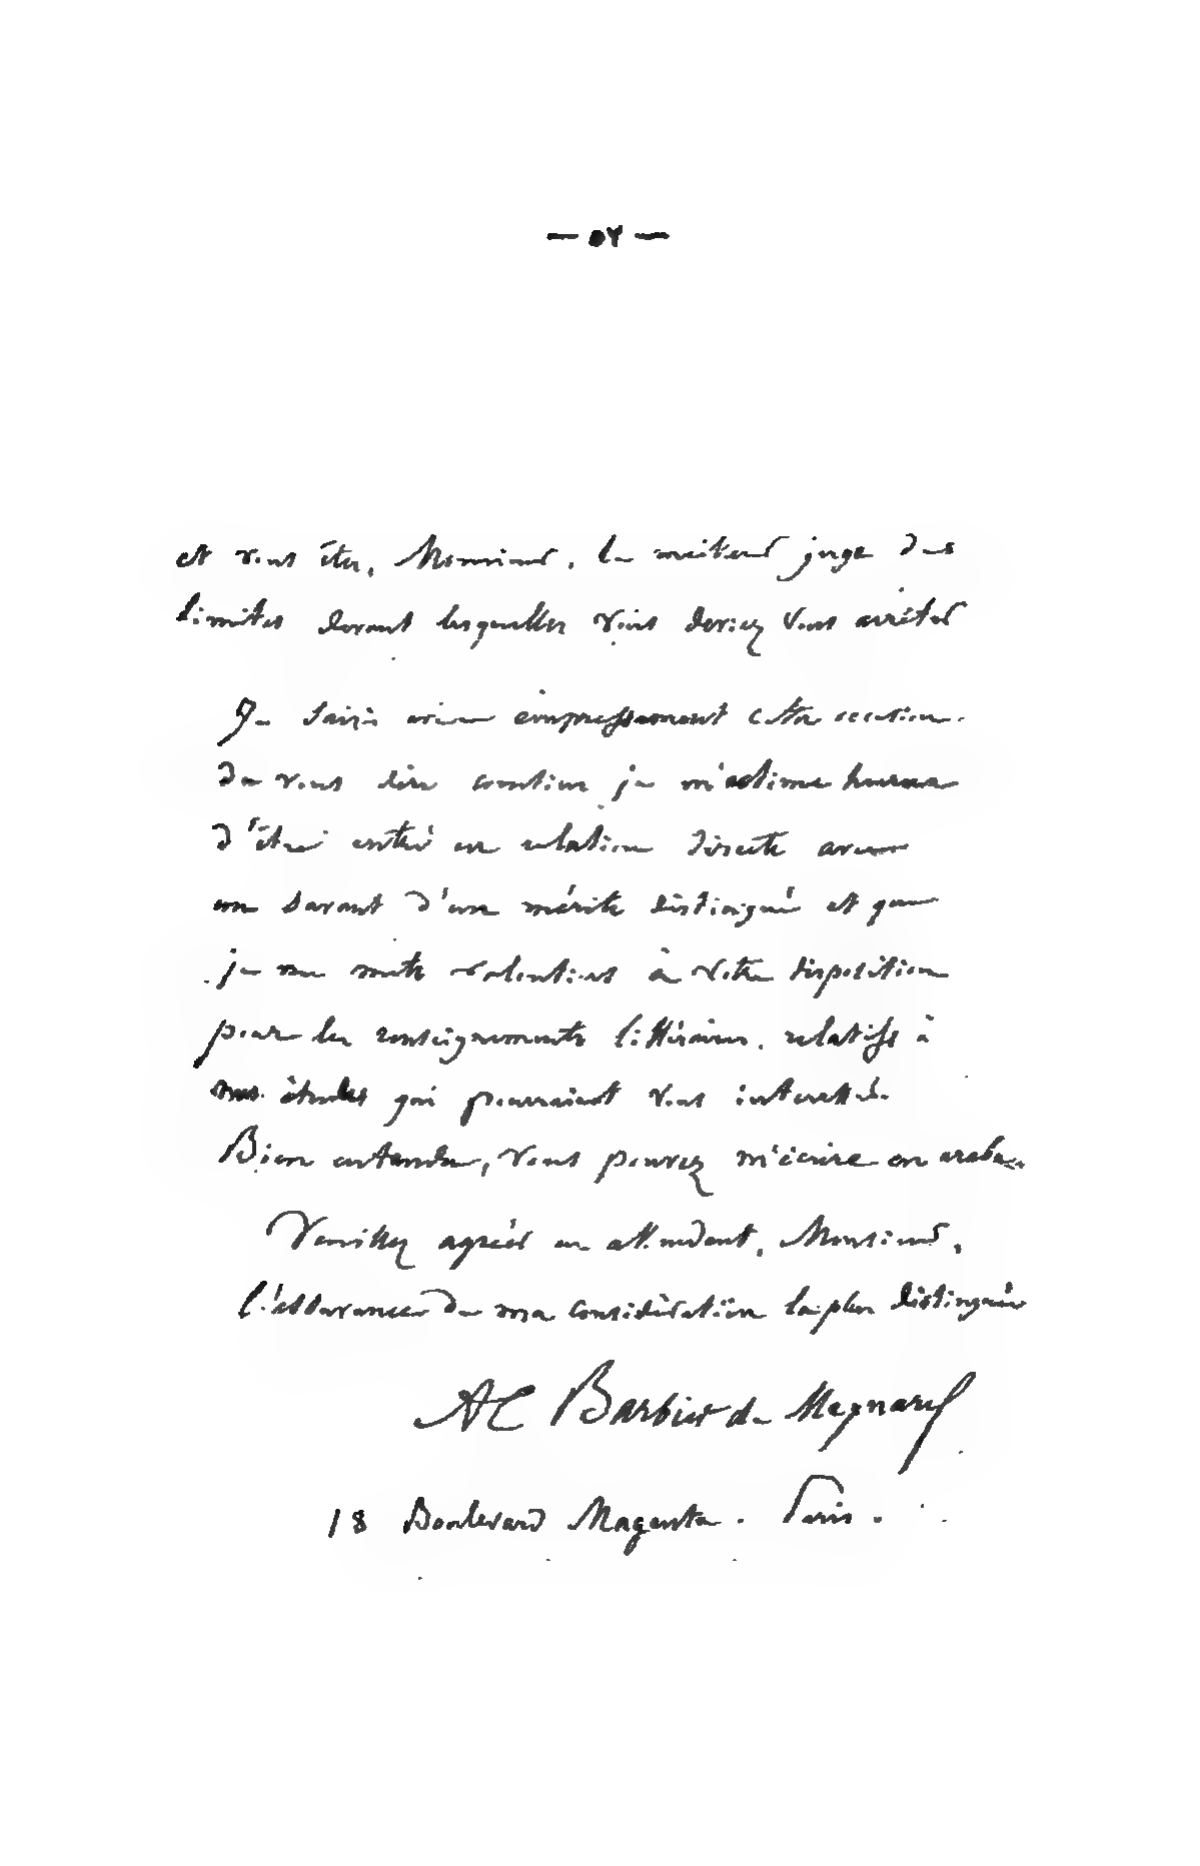 — ٥٢ —
et vous êtes, Monsieur, le meilleur juge des
limites devant lesquelles vous devriez vous arrêter
Je saisis avec empressement cette occasion
de vous dire combien je m'estime heureux
d'être entré en relation directe avec
un savant d'un mérite distingué et que
je me mets volontiers à votre disposition
pour les renseignements littéraires, relatifs à
nos études qui pourraient vous intéresser.
Bien entendu, vous pouvez m'écrire en arabe.
Veuillez agréer en attendant, Monsieur,
l'assurance de ma considération la plus distinguée
AC Barbier de Meynard
18 Boulevard Magenta. Paris.